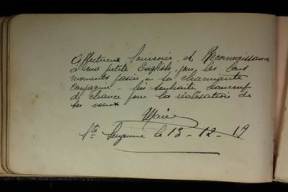 Affectueux Souvenir et Reconnaissance
à une petite English pour les bons
moments passés en sa charmante
compagnie. Lui souhaite beaucoup
de chance pour la réalisation de
ses vœux
Marie
le 13-12-19